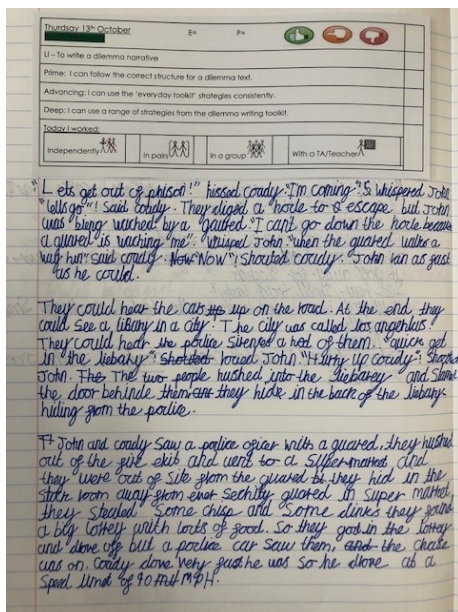 Thursday 13th October
E= P=
LI – To write a dilemma narrative
Prime: I can follow the correct structure for a dilemma text.
Advancing: I can use the 'everyday toolkit' strategies consistently.
Deep: I can use a range of strategies from the dilemma writing toolkit.
Today I worked:
Independently In pairs In a group With a TA/Teacher
"Lets get out of phison!" hissed coudy. "I'm coming". Whispered John
"lells go"! Said coudy. They diged a hole to escape but John
was bleng wached by a gaured. "I cant go down the hole because
a guared is waching me". Whisped John "when the guared walks a
way hun" said coudy. Now "Now"! Shouted coudy. John ran as fast
as he could.
They could hear the cars up on the road. At the end they
could see a libary in a city. The city was called los angelus.
They could hear the police sirenes a hed of them. "quick get
in the liebary": Shouted John. "Hurry up coudy"!
John. The The two people rushed into the liebarey and Slamd
the door behinde them. they hide in the back of the liebary
hiding from the police.
John and coudy saw a police oficer with a guared, they rushed
out of the fire exit and went to a Super market, and
they were out of site from the guared they hid in the
stock room away from ever Sechity guared in Super market,
they stealed Some chisp and Some dinks they found
a big lorrey with lorts of food. So they got in the lorrey
and drove off but a police car saw them, and the chase
was on. Coudy drove very fast he was so he drove at a
Speed limit of 90 MPH.